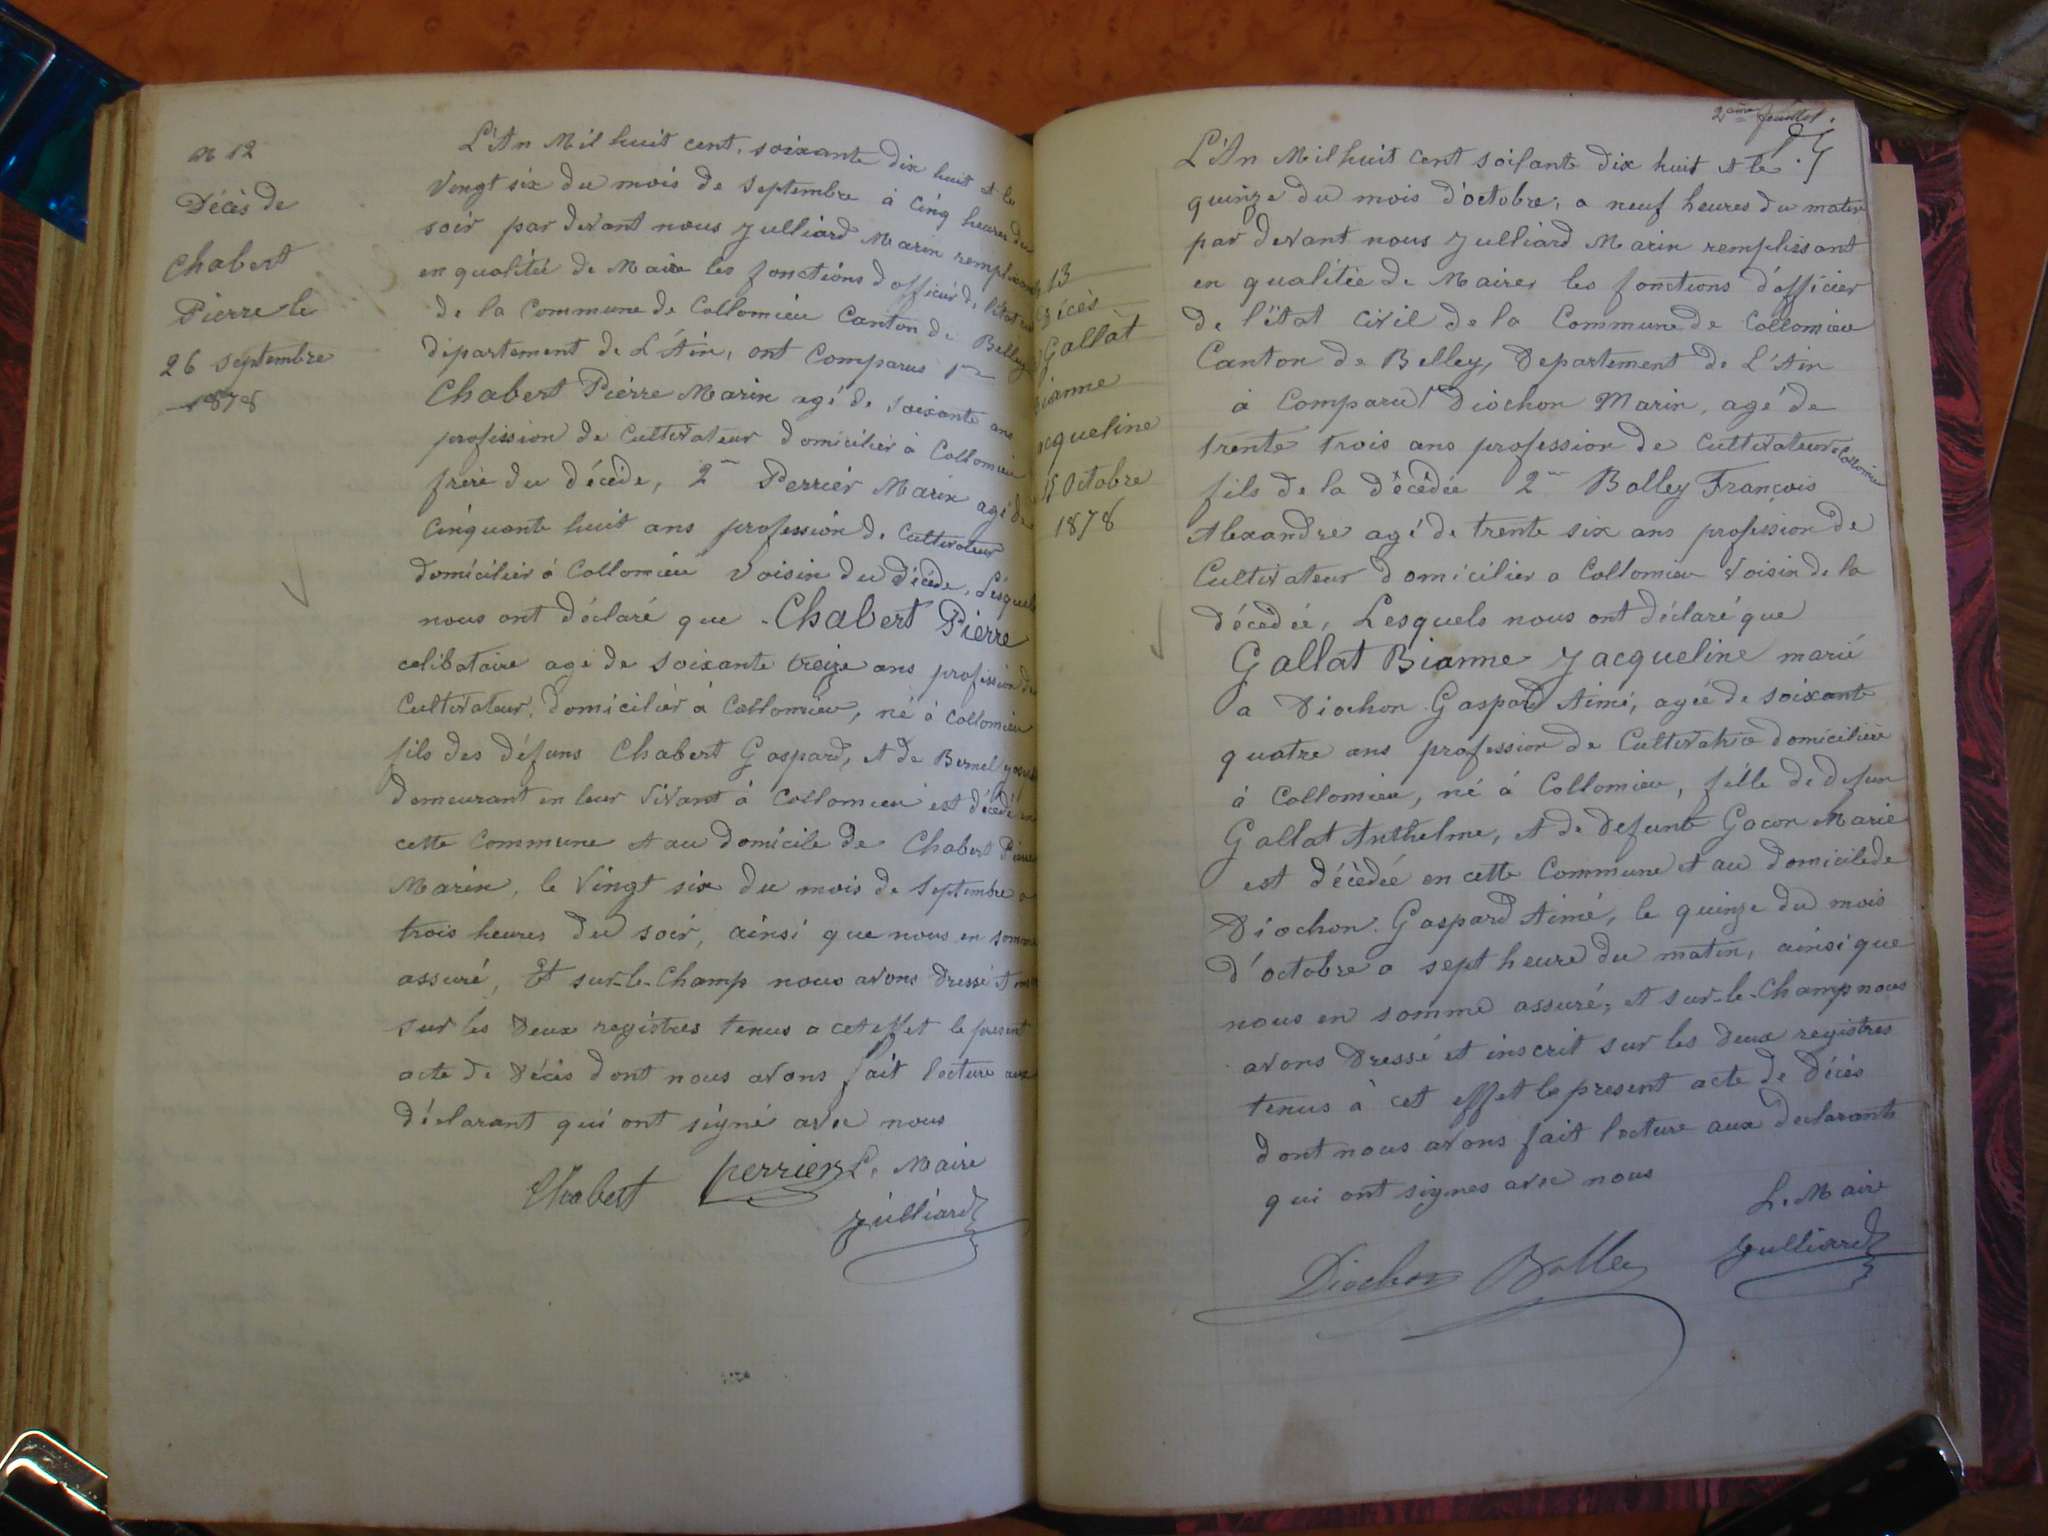 N 12
Décès de
Chabert
Pierre le
26 septembre
1878
L'An Mil huit cent soixante dix huit et le
Vingt six du mois de Septembre à cinq heures du
soir par devant nous Julliard Marin remplissant
en qualitée de Maire les fonctions d'officier de l'état
de la Commune de Collomieu Canton de Belley
département de L'Ain, ont Comparus 1er
Chabert Pierre Marin agé de soixante ans
profession de Cultivateur domicilier à Collomieu
frère du décède, 2me Perrier Marin agé de
Cinquante huit ans profession de Cultivateur
domicilier à Collomieu Voisin du Décéde, Lesquels
nous ont déclaré que Chabert Pierre
celibataire agé de soixante treize ans profession de
Cultivateur, domicilier à Collomieu, né à Collomieu
fils des défuns Chabert Gaspard, et de
demeurant en leur Vivant à Collomieu est décédé en
cette Commune et au domicile de Chabert Pierre
Marin, le Vingt six du mois de Septembre a
trois heures du soir, ainsi que nous en somme
assuré, Et sur-le-Champ nous avons dressé et
sur les Deux registres tenus a cet effet le present
acte de Décès dont nous avons fait lecture aux
déclarant qui ont signé avec nous
Chabert Perrier Le Maire
Julliard
2ème feuillet.
13
Décès
Gallat
Bianne
Jacqueline
15 Octobre
1878
L'An Mil huit cent soixante dix huit et le
quinze du mois d'octobre, a neuf heures du matin
par devant nous Julliard Marin remplissant
en qualitée de Maire, les fonctions d'officier
de l'état civil de la Commune de Collomieu
Canton de Belley, Departement de L'Ain
à Comparu 1er Diochon Marin, agé de
trente trois ans profession de Cultivateur a Collomieu
fils de la décèdée 2me Bolley François
Alexandre agé de trente six ans profession de
Cultivateur domicilier a Collomieu Voisin de la
décèdée, Lesquels nous ont déclaré que
Gallat Bianne Jacqueline marié
a Diochon Gaspard Aimé, agée de soixante
quatre ans profession de Cultivatrice domicilière
à Collomieu, né à Collomieu, fille de defun
Gallat Anthelme, et de Defunte Gocon Marie
est décèdée en cette Commune et au domicile de
Diochon Gaspard Aimé, le quinze du mois
d'octobre a sept heure du matin, ainsi que
nous en somme assuré, et sur-le-Champ nous
avons Dressé et inscrit sur les Deux registres
tenus à cet effet le present acte de Décès
dont nous avons fait lecture aux declarants
qui ont signes avec nous
Le Maire
Diochon Bolley Julliard